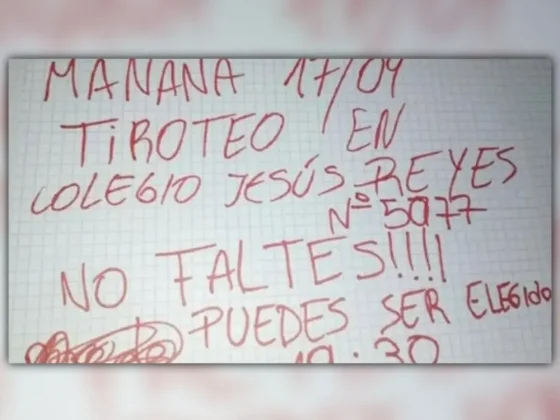 MAÑANA 17/04
TIROTEO EN
COLEGIO JESÚS REYES
Nº 5077
NO FALTES!!!!
PUEDES SER ELEGIDO